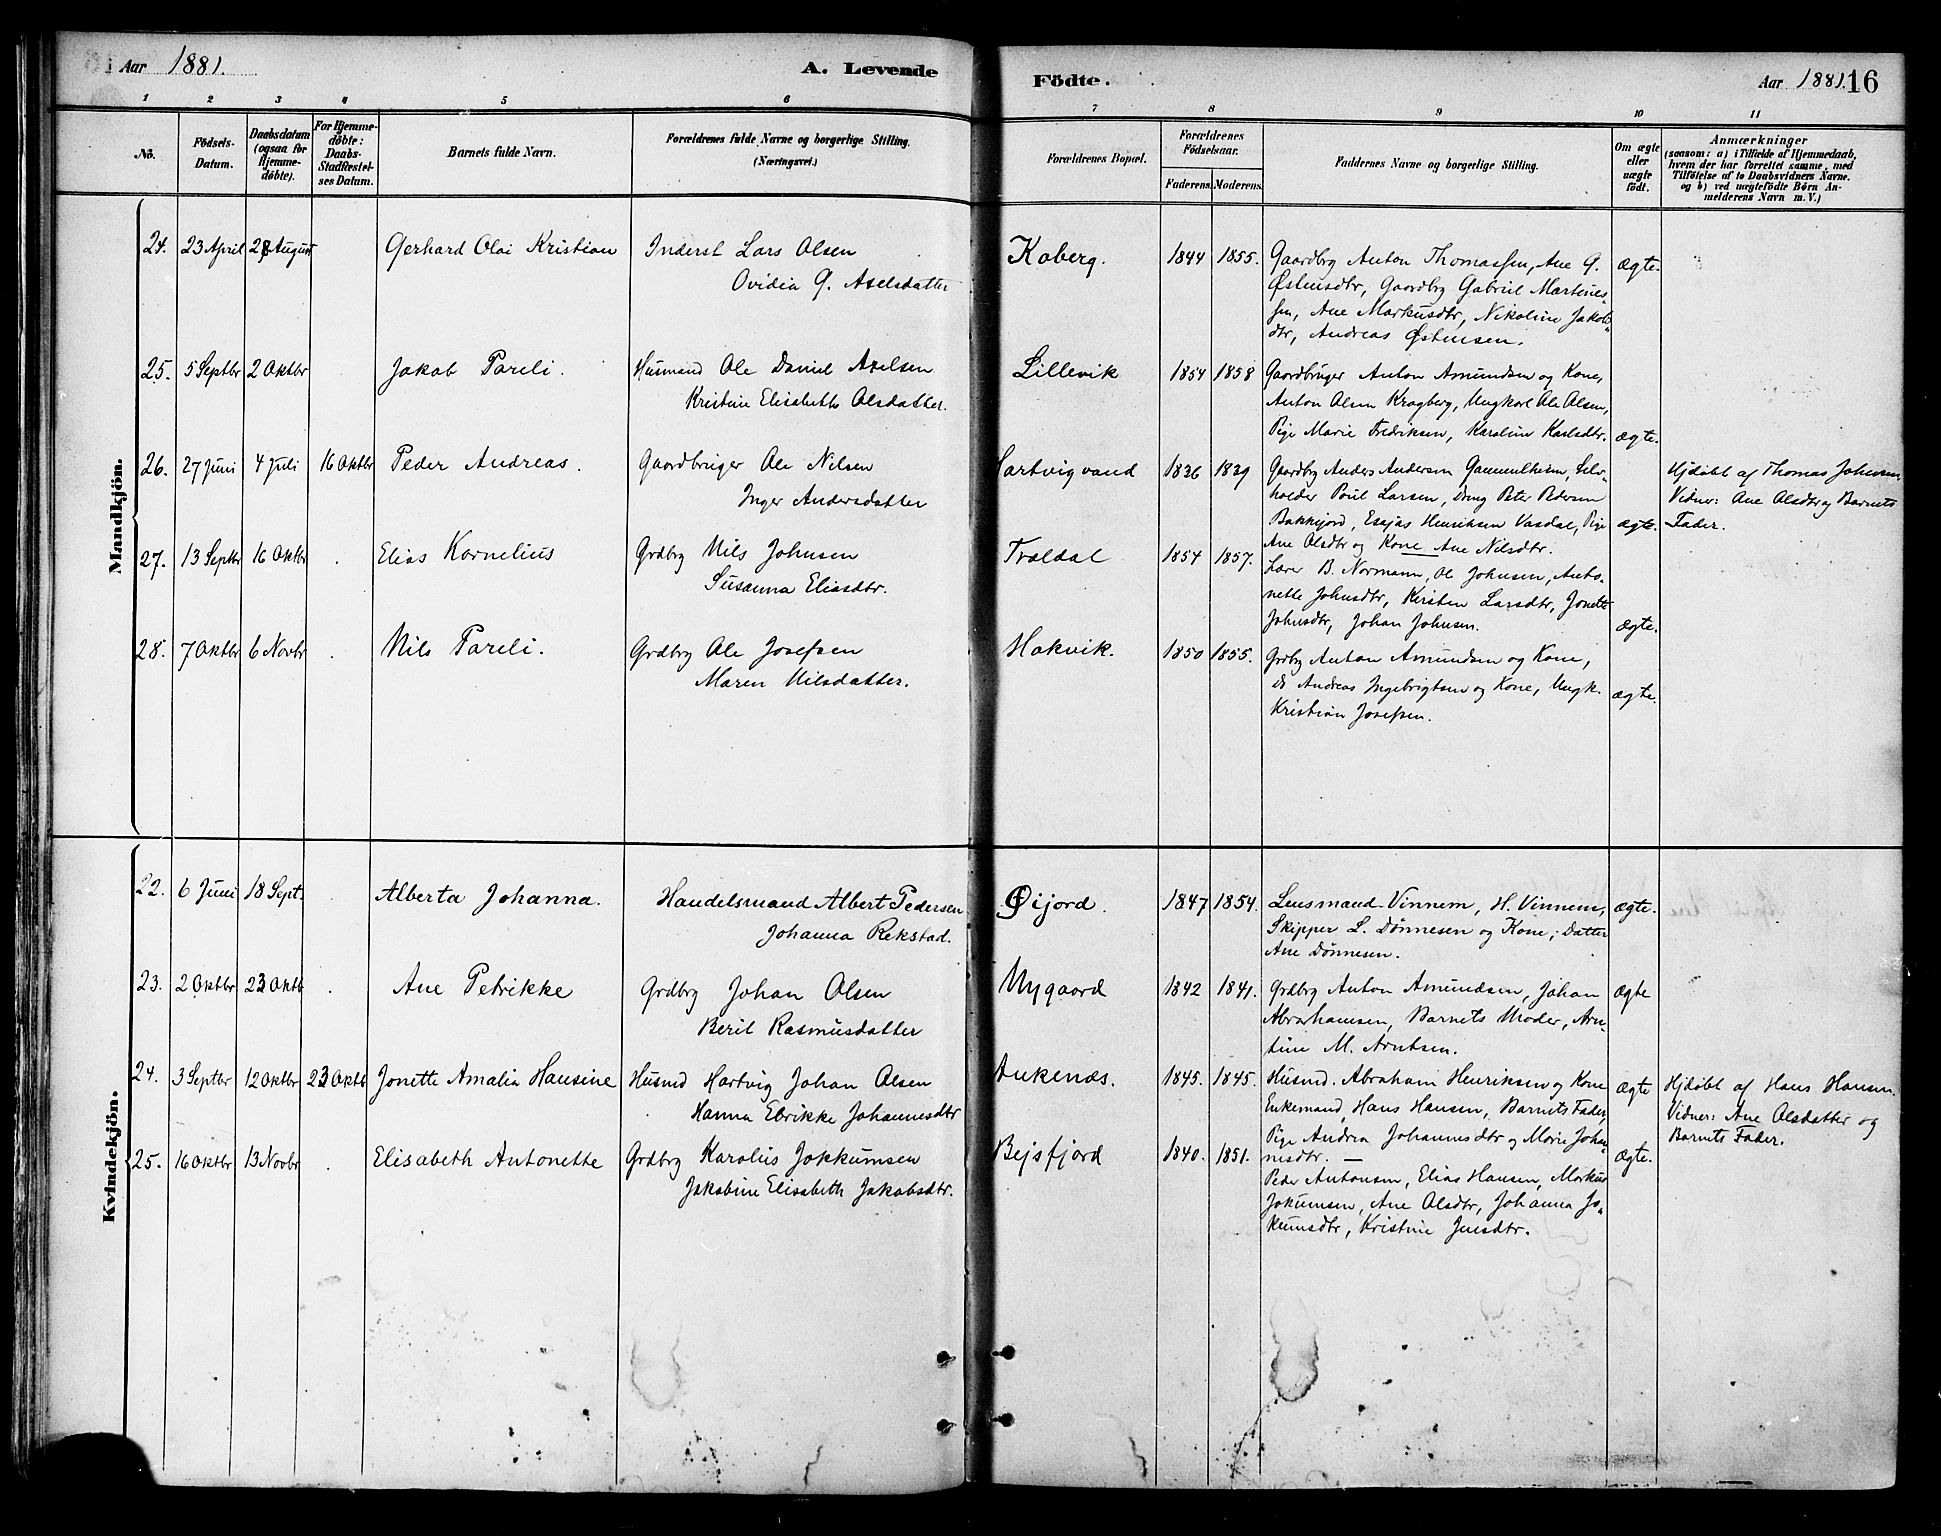 Aar 1881. A. Levende Fødte. Aar 1881. 16
1 2 3 4 5 6 7 8 9 10 11
Nö. Födsels-Datum. Daabsdatum (ogsaa for Hjemme-döbte). For Hjemme-döbte: Daabs-Stadfæstel-ses Datum. Barnets fulde Navn. Forældrenes fulde Navne og borgerlige Stilling. (Næringsvei.) Forældrenes Bopæl. Forældrenes Födselsaar. Faderens. Moderens. Faddernes Navne og borgerlige Stilling. Om ægte eller uægte födt. Anmærkninger (saasom: a) i Tilfælde af Hjemmedaab, hvem der har forrettet samme, med Tilföielse af to Daabsvidners Navne, og b) ved uægtefödte Börn Anmelderens Navn m. V.)
Mandkjön.
24. 23 April 28 August Gerhard Olai Kristian Inderst Lars Olsen Koberg. 1844 1855. Gaardbrg Anton Thomassen, Ane G. ægte.
Ovidia G. Axelsdatter Østensdtr, Gaardbrg Gabriel Martines-
sen, Ane Markusdtr, Nikoline Jakobs-
dtr, Andreas Østensen.
25. 5 Septbr 2 Oktbr Jakob Pareli. Husmand Ole Daniel Axelsen Lillevik 1854 1858 Gaardbruger Anton Amundsen og Kone,
Kristine Elisabeth Olsdatter. Anton Olsen Kragberg, Ungkarl Ole Olsen,
Pige Marie Fredriksen, Karoline Karlsdtr. ægte.
26. 27 Juni 4 Juli 16 Oktbr Peder Andreas. Gaardbruger Ole Nilsen Hartvigvand 1836 1839 Gaardbrg Anders Andersen Gammelheim, Selv- Hjdøbt af Thomas Johnsen.
Inger Andersdatter holder Poul Larsen, Dreng Peter Pedersen Vidner: Ane Olsdtr og Barnets
Bakkejord, Esajas Henriksen Vasdal, Pige ægte. Fader.
Ane Olsdtr og Kone Ane Nilsdtr.
27. 13 Septbr 16 Oktbr Elias Kornelius Grdbrg Nils Johnsen Trældal 1854 1857. Lærer B. Normann, Ol Johnsen, Anto-
Susanna Eliasdtr. nette Johnsdtr, Kirsten Larsdtr, Jonette
Johnsdtr, Johan Johnsen. ægte.
28. 7 Oktbr 6 Novbr Nils Pareli. Grdbrg Ole Josefsen Hakvik. 1850 1855. Grdbg Anton Amundsen og Kone,
Maren Nilsdatter. ds Andreas Ingebrigtsen og Kone, Ungk. ægte.
Kristian Josefsen.
Kvindekjön.
22. 6 Juni 18 Sept. Alberta Johanna. Handelsmand Albert Pedersen Øijord. 1847 1854. Lensmand Vinnem, H. Vinnem, ægte.
Johanna Rekstad. Skipper L. Dønnesen og Kone, Datter
Ane Dønnesen.
23. 2 Oktbr 23 Oktb Ane Petrikke Grdbrg Johan Olsen Nygaard 1842 1841. Grdbrg Anton Amundsen, Johan ægte
Berit Rasmusdatter Abrahamsen, Barnets Moder, Arn-
tine M. Arntsen.
24. 3 Septbr 12 Oktbr 23 Oktb Jonette Amalia Hansine Husmd Hartvig Johan Olsen Ankenæs. 1845. 1845. Husmd. Abraham Henriksen og Kone ægte Hjdøbt af Hans Hansen.
Hanna Elrikke Johannesdtr Enkemand, Hans Hansen, Barnets Fader, Vidner: Ane Olsdatter og
Pige Andrea Johannesdtr og Marie Johan- Barnets Fader.
nesdtr.
25. 16 Oktbr 13 Novbr Elisabeth Antonette Grdbrg Karolius Jokkumsen Bejsfjord 1840. 1851. Peder Antonsen, Elias Hansen, Markus ægte.
Jakobine Elisabeth Jakobsdtr. Jokumsen, Ane Olsdtr, Johanna Jo-
kumsdtr, Kristine Jensdtr.